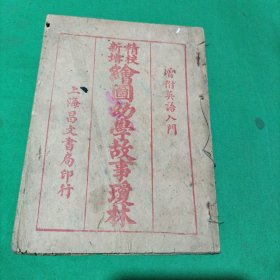 增附英語入門
精校
新增
繪圖幼學故事瓊林
上海昌文書局印行